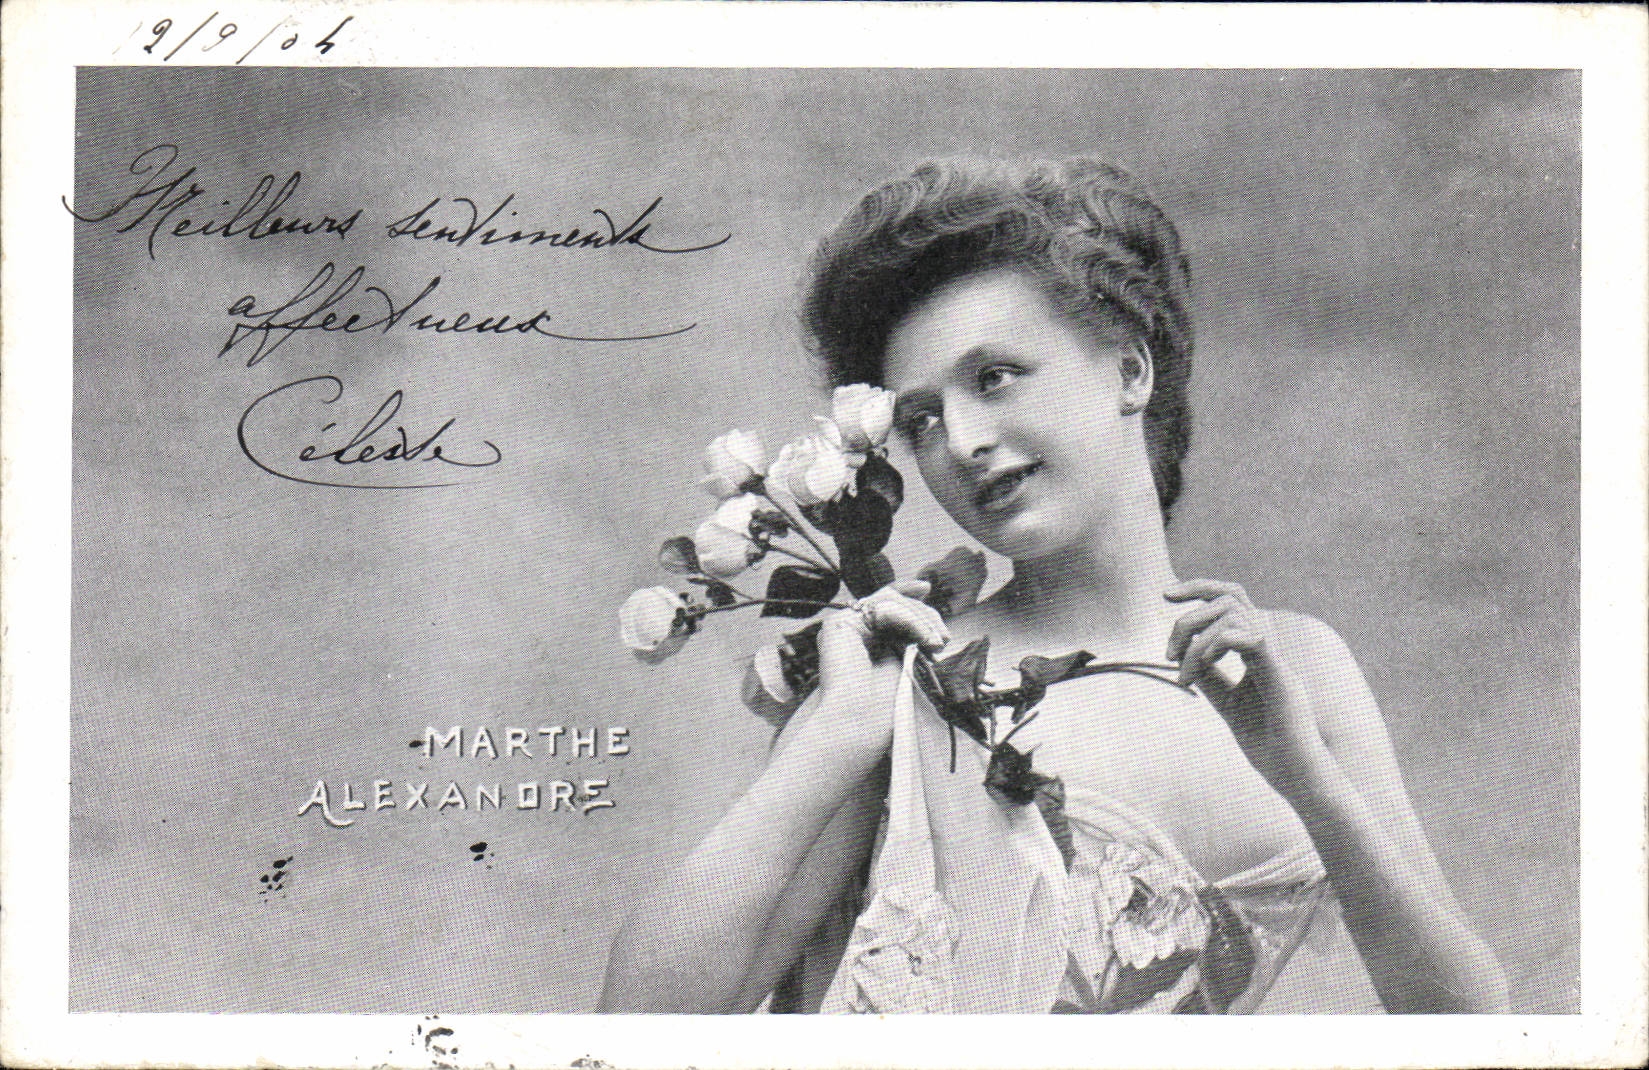 12/9/04
Meilleurs sentiments
affectueux
Céleste
MARTHE
ALEXANDRE